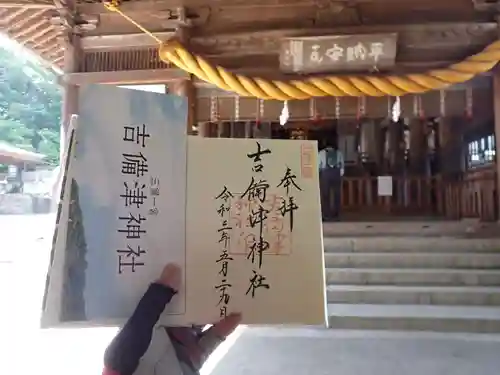 三備一宮
吉備津神社
奉拝
吉備津神社
令和三年五月二九日
平賊安民